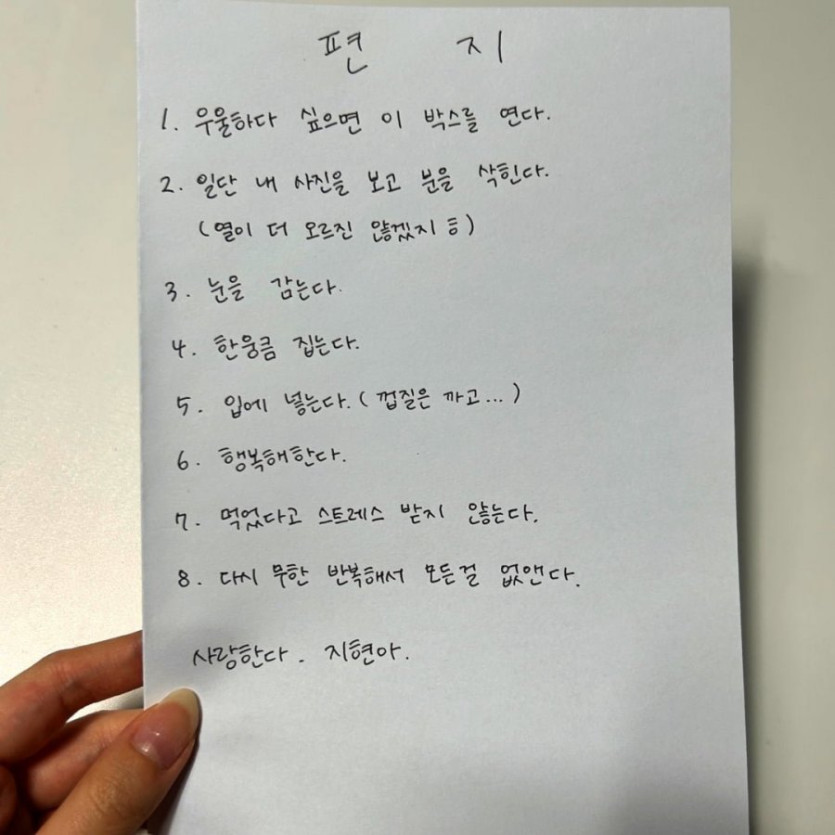 편 지
1. 우울하다 싶으면 이 박스를 연다.
2. 일단 내 사진을 보고 분을 삭힌다.
(열이 더 오르진 않겠지 ㅎ)
3. 눈을 감는다.
4. 한웅큼 집는다.
5. 입에 넣는다. (껍질은 까고...)
6. 행복해한다.
7. 먹었다고 스트레스 받지 않는다.
8. 다시 무한 반복해서 모든걸 없앤다.
사랑한다. 지현아.